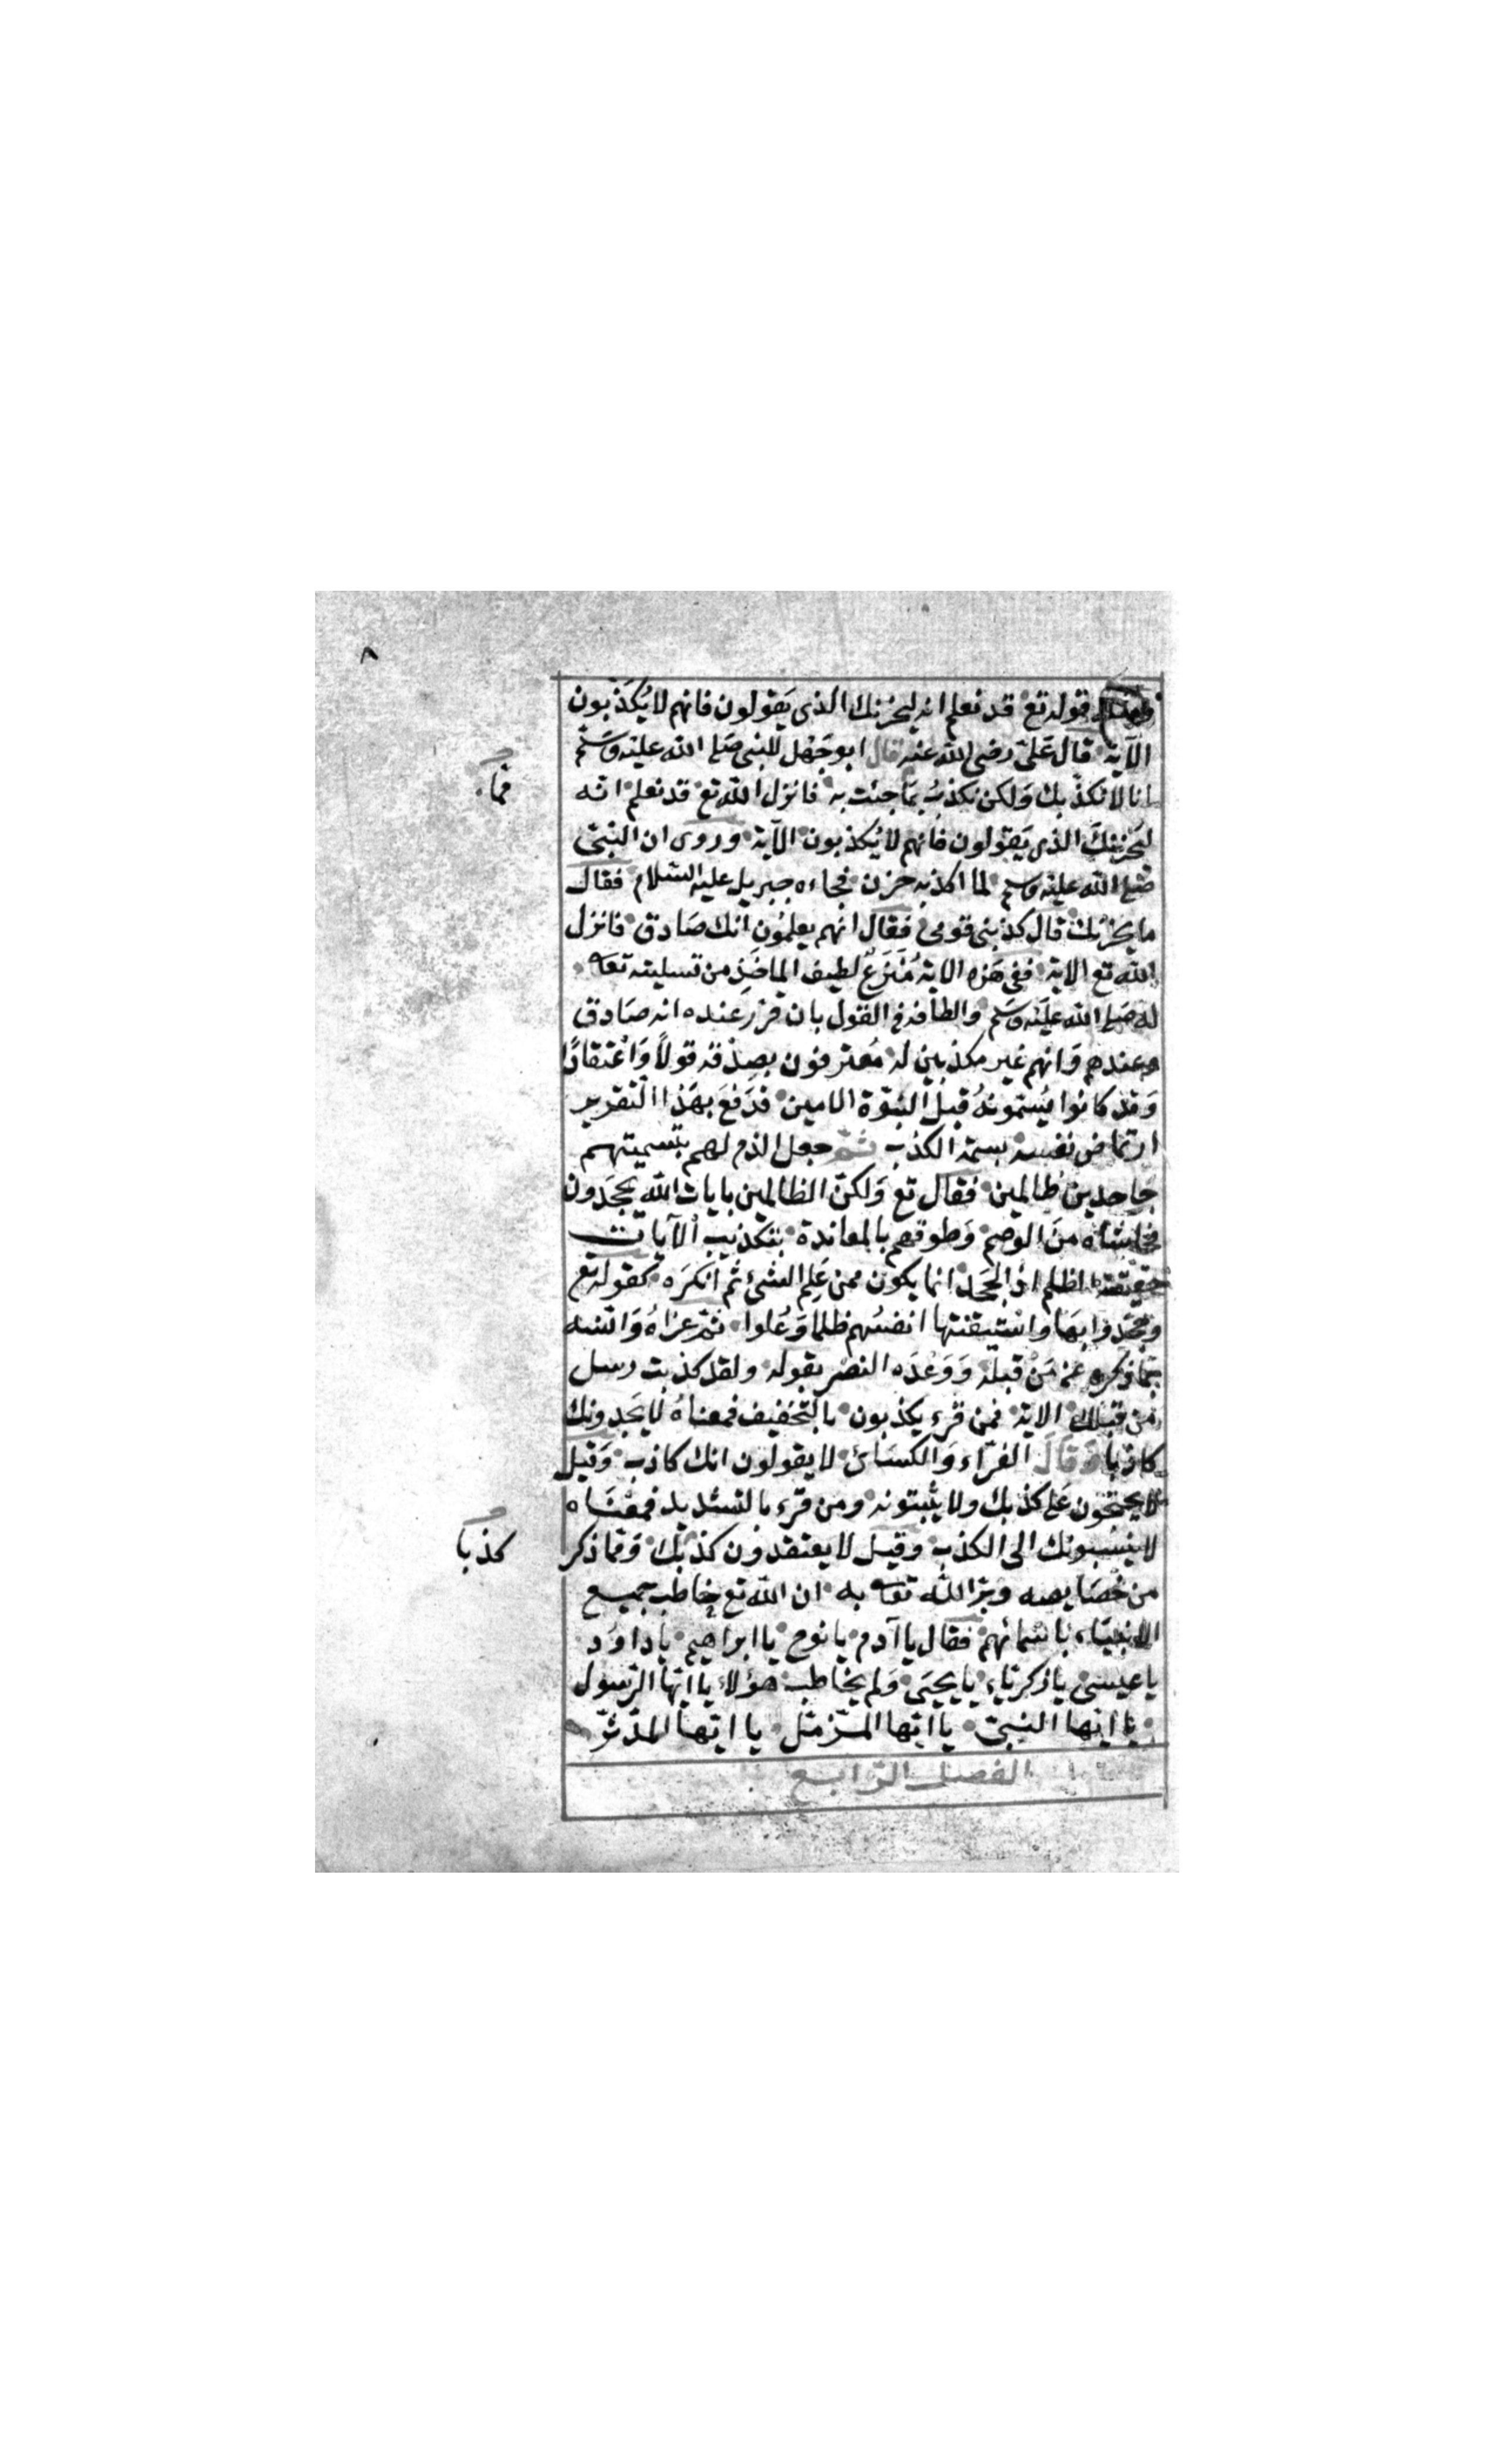 ٨
ومثله قوله تع قد نعلم انه ليحزنك الذى يَقولون فانهم لا يُكَذّبون
الآية قال عَلىّ رضى الله عنه قال ابو جَهْل للنبى صَلى الله عليْه وسَلم
انا لا نكذّبك وَلكن نكذبُ بمَا جئت به فانزل الله تع قد نعلم انه
ليَحْزنكَ الذى يَقولون فانهم لا يُكذبون الآية وروى ان النبىّ
صَلى الله عليْه وسلم لما اكذبه حزن فجاءه جبريل عليه السّلام فقال
ما يحزنك قال كذبنى قومى فقال انهم يعلمُون انك صَادق فانزل
الله تع الاية ففى هَذه الاية مَنْزَعٌ لطيف الماخَذِ من تسليته تعالى
له صَلى الله عليْه وسَلم والطافه فى القول بان قرّر عنده انه صَادق
عندهم وَانهم غير مكذبين له مُعترفون بصِدْقه قولاً وَاعْتقادًا
وَقد كانوا يُسَمونهُ قبل النبوّة الامين فدَفعَ بهَذا التقرير
ارتماض نفسه بسمة الكذب ثمّ جعل الذم لهم بتسميتهم
جَاحدين ظالمين فقال تع وَلكنّ الظالمين بايات الله يجحَدون
فحاشاه منَ الوصْم وَطوقهم بالمعاندة بتكذيب الآيات
حقيقة الظلم اذ الجحد انما يكون ممن عَلِم الشئ ثم انكرَه كقوله تع
وجحَدوا بهَا واسْتيقنتها انفسُهم ظلما وَعُلوا ثمّ عزاهُ وَانسَه
بما ذكره عن مَنْ قبله وَوَعْدَه النصْر بقوله ولقد كذبت رسل
من قبلك الاية فمن قرء يكذبون بالتخفيف فمعناهُ لا يَجدونك
كاذبا وَقالَ الفرّاء وَالكسَائ لا يقولون انك كاذب وَقيل
لا يحتجّون عَلى كذبك ولا يُثبتونه ومن قرء بالتشديد فمعْنَاه
لا ينسُبونك الى الكذب وقيل لا يعتقدون كذبَك وَمما ذكر
من خصَايصه وبرّ الله تعالى به ان الله تع خاطب جميع
الانبيَاء باسْمائهم فقال يا آدم يا نوح يا ابراهيم يا داوُد
يا عيسىَ يا زكريّاء يا يحيَى وَلم يخاطب هؤلاء يا ايّها الرّسول
يا ايّها النبىّ يا ايّها المزّمّل يا ايّها المدّثرّ
الفصل الرّابع
كذبا